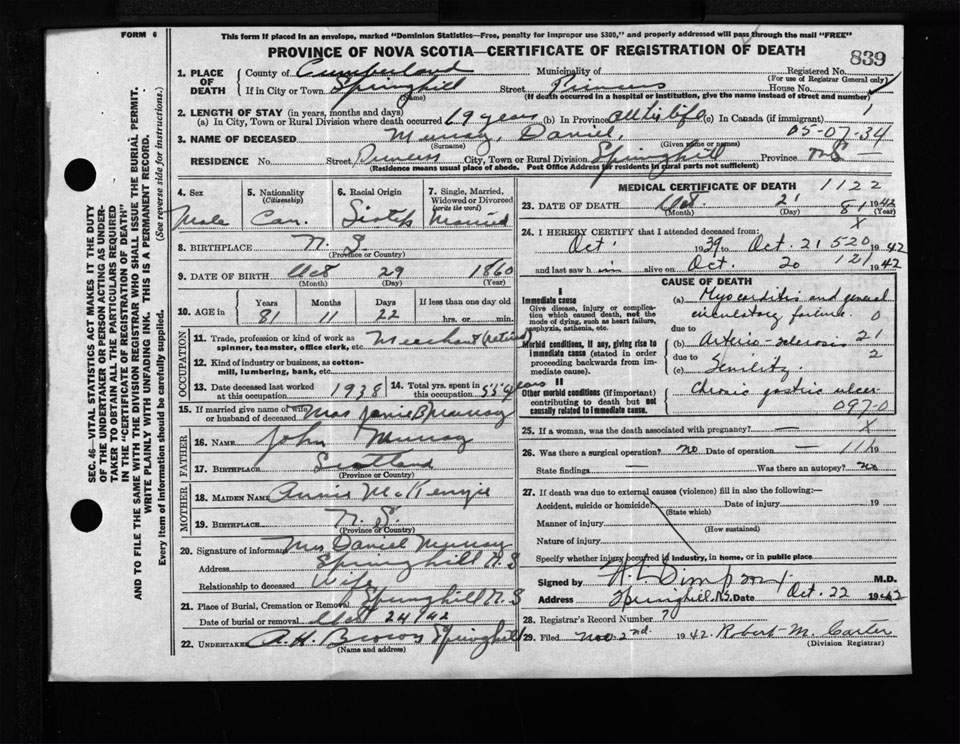 FORM 6
This form if placed in an envelope, marked "Dominion Statistics—Free, penalty for improper use $300," and properly addressed will pass through the mail "FREE"
PROVINCE OF NOVA SCOTIA—CERTIFICATE OF REGISTRATION OF DEATH
839
1. PLACE OF DEATH
County of Cumberland Municipality of Registered No.
(For use of Registrar General only)
If in City or Town Springhill Street Princess House No.
(Name) (If death occurred in a hospital or institution, give the name instead of street and number)
2. LENGTH OF STAY (in years, months and days)
(a) In City, Town or Rural Division where death occurred 69 years (b) In Province all his life (c) In Canada (if immigrant) 1
3. NAME OF DECEASED Murray, Daniel, 05-07-34
(Surname) (Given name or names)
RESIDENCE No. Street Princess City, Town or Rural Division Springhill Province N.S.
(Residence means usual place of abode. Post Office Address for residents in rural parts not sufficient)
4. Sex Male
5. Nationality (Citizenship) Can.
6. Racial Origin Scotch
7. Single, Married, Widowed or Divorced (write the word) Married
8. BIRTHPLACE N. S.
(Province or Country)
9. DATE OF BIRTH Oct 29 1860
(Month) (Day) (Year)
10. AGE in Years Months Days If less than one day old
81 11 22 hrs. or min.
OCCUPATION
11. Trade, profession or kind of work as spinner, teamster, office clerk, etc. Merchant (retired)
12. Kind of industry or business, as cotton-mill, lumbering, bank, etc.
13. Date deceased last worked at this occupation 1938
14. Total yrs. spent in this occupation 55 years
15. If married give name of wife or husband of deceased Mrs Janie B Murray
FATHER
16. NAME John Murray
17. BIRTHPLACE Scotland
(Province or Country)
MOTHER
18. MAIDEN NAME Annie McKenzie
19. BIRTHPLACE N. S.
(Province or Country)
20. Signature of informant Mrs Daniel Murray
Address Springhill N.S
Relationship to deceased Wife
21. Place of Burial, Cremation or Removal Springhill N.S
Date of burial or removal Oct 24/42
22. UNDERTAKER A.H. Brown Springhill
(Name and address)
MEDICAL CERTIFICATE OF DEATH 1122
23. DATE OF DEATH Oct 21 1942
(Month) (Day) 81 (Year)
24. I HEREBY CERTIFY that I attended deceased from: X
Oct. 1939 to Oct. 21 520 1942
and last saw him alive on Oct. 20 121 1942
CAUSE OF DEATH
I
Immediate cause
Give disease, injury or complication which caused death, not the mode of dying, such as heart failure, asphyxia, asthenia, etc.
(a) Myocarditis and general circulatory failure 0
due to
Morbid conditions, if any, giving rise to immediate cause (stated in order proceeding backwards from immediate cause).
(b) Arterio-sclerosis 21
due to 2
(c) Senility
II
Other morbid conditions (if important) contributing to death but not causally related to immediate cause.
Chronic gastric ulcer
097-0
25. If a woman, was the death associated with pregnancy? — X
26. Was there a surgical operation? no Date of operation — 11
State findings — Was there an autopsy? no
27. If death was due to external causes (violence) fill in also the following:—
Accident, suicide or homicide? Date of injury 19
(State which)
Manner of injury
(How sustained)
Nature of injury
Specify whether injury occurred in industry, in home, or in public place
Signed by M.D.
Address Springhill, N.S. Date Oct. 22 1942
28. Registrar's Record Number 70
29. Filed Nov 2nd. 1942. Robert M. Carter
(Division Registrar)
SEC. 46—VITAL STATISTICS ACT MAKES IT THE DUTY
OF THE UNDERTAKER OR PERSON ACTING AS UNDER-
TAKER TO OBTAIN ALL THE PARTICULARS REQUIRED
IN THE "CERTIFICATE OF REGISTRATION OF DEATH"
AND TO FILE THE SAME WITH THE DIVISION REGISTRAR WHO SHALL ISSUE THE BURIAL PERMIT.
WRITE PLAINLY WITH UNFADING INK. THIS IS A PERMANENT RECORD.
Every item of Information should be carefully supplied. (See reverse side for instructions.)